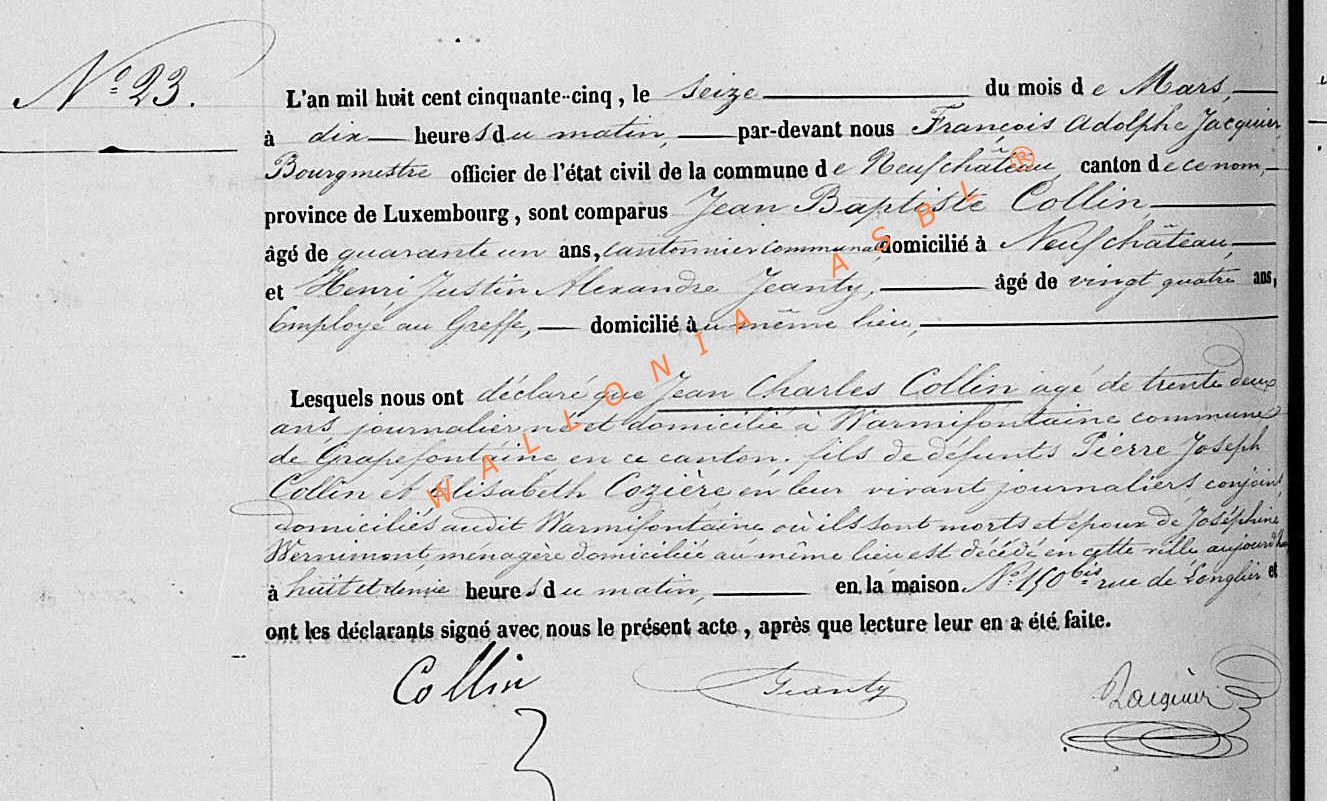 N° 23.
L'an mil huit cent cinquante-cinq, le seize du mois de Mars,
à dix heures du matin, par-devant nous François Adolphe Jacquier
Bourgmestre officier de l'état civil de la commune de Neufchâteau, canton de ce nom,
province de Luxembourg, sont comparus Jean Baptiste Collin
âgé de quarante un ans, cantonnier communal, domicilié à Neufchâteau,
et Henri Justin Alexandre Jeanty, âgé de vingt quatre ans,
Employé au Greffe, domicilié au même lieu,
Lesquels nous ont déclaré que Jean Charles Collin agé de trente deux
ans, journalier né et domicilié à Warmifontaine commune
de Grapefontaine en ce canton. fils de défunts Pierre Joseph
Collin et Elisabeth Cozière en leur vivant journaliers, conjoints
domiciliés audit Warmifontaine où ils sont morts et époux de Joséphine
Wernimont, ménagère domiciliée au même lieu est décédé en cette ville aujourd'hui
à huit et demie heures du matin, en la maison N° 150 bis rue de Longlier et
ont les déclarants signé avec nous le présent acte, après que lecture leur en a été faite.
Collin Jeanty Jacquier
WALLONIA ASBL ®